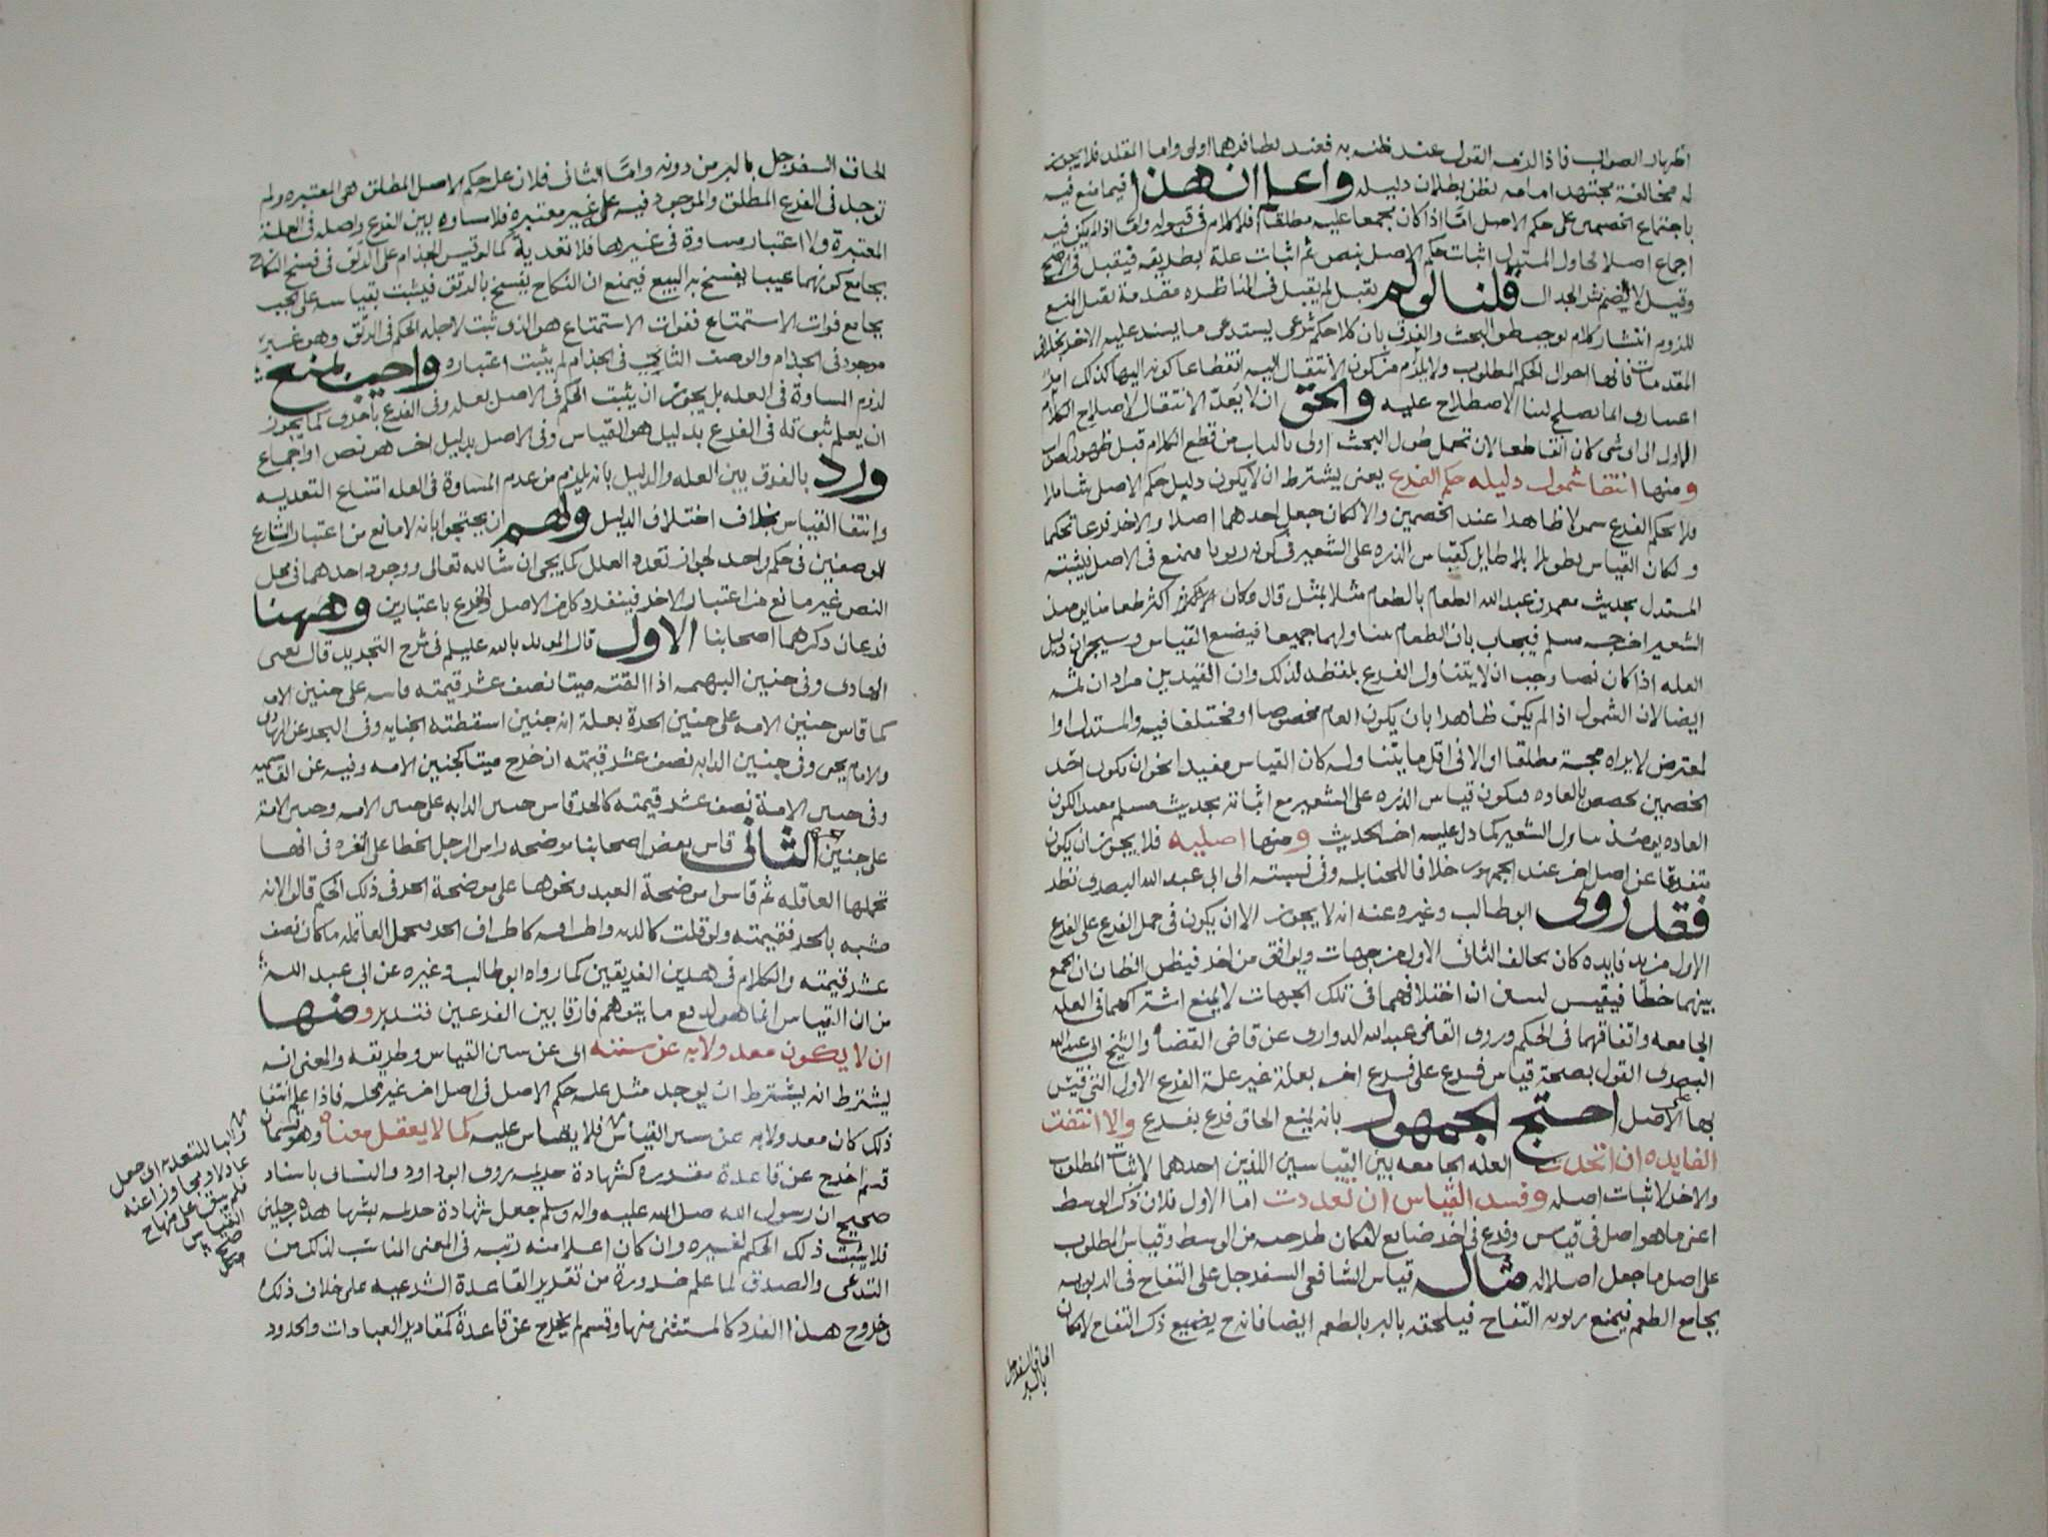 اظهار الصواب فاذا لزمه القول عند ظنه به فعند تظافرهما اولى واما المقلد فلا يجوز
له مخالفة مجتهد امامه لظن بطلان دليله واعلم ان هذا فيما منع فيه
باجتماع الخصمين على حكم الاصل امّا اذا كان مجمعا عليه مطلقا فلا كلام في قبوله وامّا اذا لم يكن فيه
اجماع اصلا لحاول المستدل اثبات حكم الاصل بنص ثم اثبات علة بطريقه فيقبل في الاصح
وقيل لا لضم نشر الجدال قلنا لو لم يقبل لم يقبل في المناظره مقدمة تقبل المنع
للزوم انتشار كلام يوجب طول البحث والفرق بان كلا حكم شرعي يستدعي ما يستدعيه الاخر بخلاف
المقدمات فانها احوال الحكم المطلوب ولا يلزم من كون الانتقال اليه انقطاعا كونه اليها كذلك امر
اعتباري انما يصلح لبنا الاصطلاح عليه والحق ان لا يعدّ الانتقال لاصلاح الكلام
الاول الى اي شي كان انقطاعا لان تحمل طول البحث اولى بالباب من قطع الكلام قبل ظهور الصواب
ومنها انتفا شمول دليله حكم الفرع يعني يشترط ان لا يكون دليل حكم الاصل شاملا
لحكم الفرع شمولا ظاهرا عند الخصمين والا لكان جعل احدهما اصلا والاخر فرعا تحكما
ولكان القياس تطويلا بلا طايل كقياس الذره على الشعير في كونه ربويا فيمنع في الاصل فيثبته
المستدل بحديث معمر بن عبدالله الطعام بالطعام مثلا بمثل قال وكان اكثر طعامنا يومئذ
الشعير اخرجه مسلم فيجاب بان الطعام يتناولهما جميعا فيضيع القياس وسيجي ان دليل
العله اذا كان نصا وجب ان لا يتناول الفرع بلفظه لذلك وان القيدين مرادان ثمه
ايضا لان الشمول اذا لم يكن ظاهرا بان يكون العام مخصوصا او مختلفا فيه والمستدل او ا
لمعترض لا يراه حجة مطلقا او الا في اقل ما يتناوله كان القياس مفيدا نحو ان يكون احد
الخصمين يخصص بالعاده فيكون قياس الذره على الشعير مع اثباته بحديث مسلم مفيدا لكون
العاده يومئذ تناول الشعير كما دل عليه اخر الحديث ومنها اصليه فلا يجوز ان يكون
متفرعا عن اصل اخر عند الجمهور خلافا للحنابله وفي نسبته الى ابي عبد الله البصري نظر
فقد روى ابو طالب وغيره عنه انه لا يجوز الا ان يكون في حمل الفرع على الفرع
الاول مزيد فايده كان يخالف الثاني الاول من جهات ويوافق من اخر فيظن الظان ان الجمع
بينهما خطا فيقيس ليبين ان اختلافهما في تلك الجهات لا يمنع اشتراكهما في العله
الجامعه واتفاقهما في الحكم وروى القاضي عبدالله الدواري عن قاضي القضاه والشيخ ابي عبدالله
البصري القول بصحة قياس فرع على فرع اخر بعلة غير علة الفرع الاول التي قيس
بها على الاصل احتج الجمهور بانه يمنع الحاق فرع بفرع والا انتفت
الفايده ان اتحدت العله الجامعه بين القياسين اللذين احدهما لاثبات المطلوب
والاخر لاثبات اصله وفسد القياس ان تعددت اما الاول فلان ذكر الوسط
اعني ما هو اصل في قياس وفرع في اخر ضايع لامكان طرحه من الوسط وقياس المطلوب
على اصل ما جعل اصلا له مثاله قياس الشافعي السفرجل على التفاح في الربويه
بجامع الطعم فيمنع ربويه التفاح فيلحقه بالبر بالطعم ايضا فانه يضيع ذكر التفاح لامكان
الحاق السفرجل
بالبر
الحاق السفرجل بالبر من دونه وامّا الثاني فلان علة حكم الاصل المطلق هي المعتبره ولم
توجد في الفرع المطلق والموجود فيه غير معتبره فلا مساوه بين الفرع واصله في العلة
المعتبرة ولا اعتبار مساوة في غيرها فلا تعدية كما لو قيس الجذام على الرتق في فسخ النكاح
بجامع كونهما عيبا يفسخ به البيع فيمنع ان النكاح يفسخ بالرتق فيثبت بقياسه على الجب
بجامع فوات الاستمتاع ففوات الاستمتاع هو الذي ثبت لاجله الحكم في الرتق وهو غير
موجود في الجذام والوصف الثابت في الجذام لم يثبت اعتباره واجيب بمنع
لزوم المساوة في العله بل يجوز ان يثبت الحكم في الاصل بعله وفي الفرع باخرى كما يجوز
ان يعلم ثبوته في الفرع بدليل هو القياس وفي الاصل بدليل اخر هو نص او اجماع
ورد بالفرق بين العله والدليل بانه يلزم من عدم المساوة في العله امتناع التعديه
وانتفا القياس بخلاف اختلاف الدليل ولهم ان يحتجوا بانه لا مانع من اعتبار الشارع
لوصفين في حكم واحد لجواز تعدد العلل كما يجي ان شا الله تعالى ووجود احدهما في محل
النص غير مانع من اعتبار الاخر فينفرد كل من الاصل والفرع باعتبارين وههنا
فرعان ذكرهما اصحابنا الاول قال المويد بالله عليلم في شرح التجريد قال يعني
الهادي وفي جنين البهيمه اذا القته ميتا نصف عشر قيمته قاسه على جنين الامه
كما قاس جنين الامه على جنين الحرة بعلة انه جنين اسقطته الجنايه وفي البحر عن الهادي
والامام يحيى وفي جنين الدابه نصف عشر قيمته ان خرج ميتا كجنين الامه وفيه عن القاسميه
وفي جنين الامة نصف عشر قيمته كالحر قاس جنين الدابه على جنين الامه وجنين الامة
على جنين الحره الثاني قاس بعض اصحابنا موضحه راس الرجل خطا على الغره في انها
تحملها العاقله ثم قاس اس موضحة العبد ونحوها على موضحة الحر في ذلك الحكم قالوا لانه
مشبه بالحر فقيمته ولو قلت كالديه واطرافه كاطراف الحر فتحمل العاقله ما كان نصف
عشر قيمته والكلام في هذين الفريقين كما رواه ابو طالب وغيره عن ابي عبد الله
من ان القياس انما هو لدفع ما يتوهم فارقا بين الفرعين فتدبر ومنها
ان لا يكون معدولا به عن سننه اي عن سنن القياس وطريقه والمعنى انه
يشترط انه يشترط ان يوجد مثل علة حكم الاصل في اصل اخر غير محله فاذا علم انتفا
ذلك كان معدولا به عن سنن القياس فلا يقاس عليه كما لا يعقل معناه وهو قسمان
قسم اخرج عن قاعدة مقدوره كشهادة خزيمه روى ابو داود والنساي باسناد
صحيح ان رسول الله صلى الله عليه واله وسلم جعل شهادة خزيمه بشهادة رجلين
فلا يثبت ذلك الحكم لغيره وان كان اعلا منه رتبه في المعنى المناسب لذلك من
التدعي والصدق لما علم ضرورة من تقرير القاعدة الشرعيه على خلاف ذلك
وخروج هذا الفرد كالمستثنى منها وقسم لم يخرج عن قاعدة كمقادير العبادات والحدود
والبا للتعديه اي جعل
عادلا ومجاوزا عنه
فلم يبق على منهاج
القياس
صح